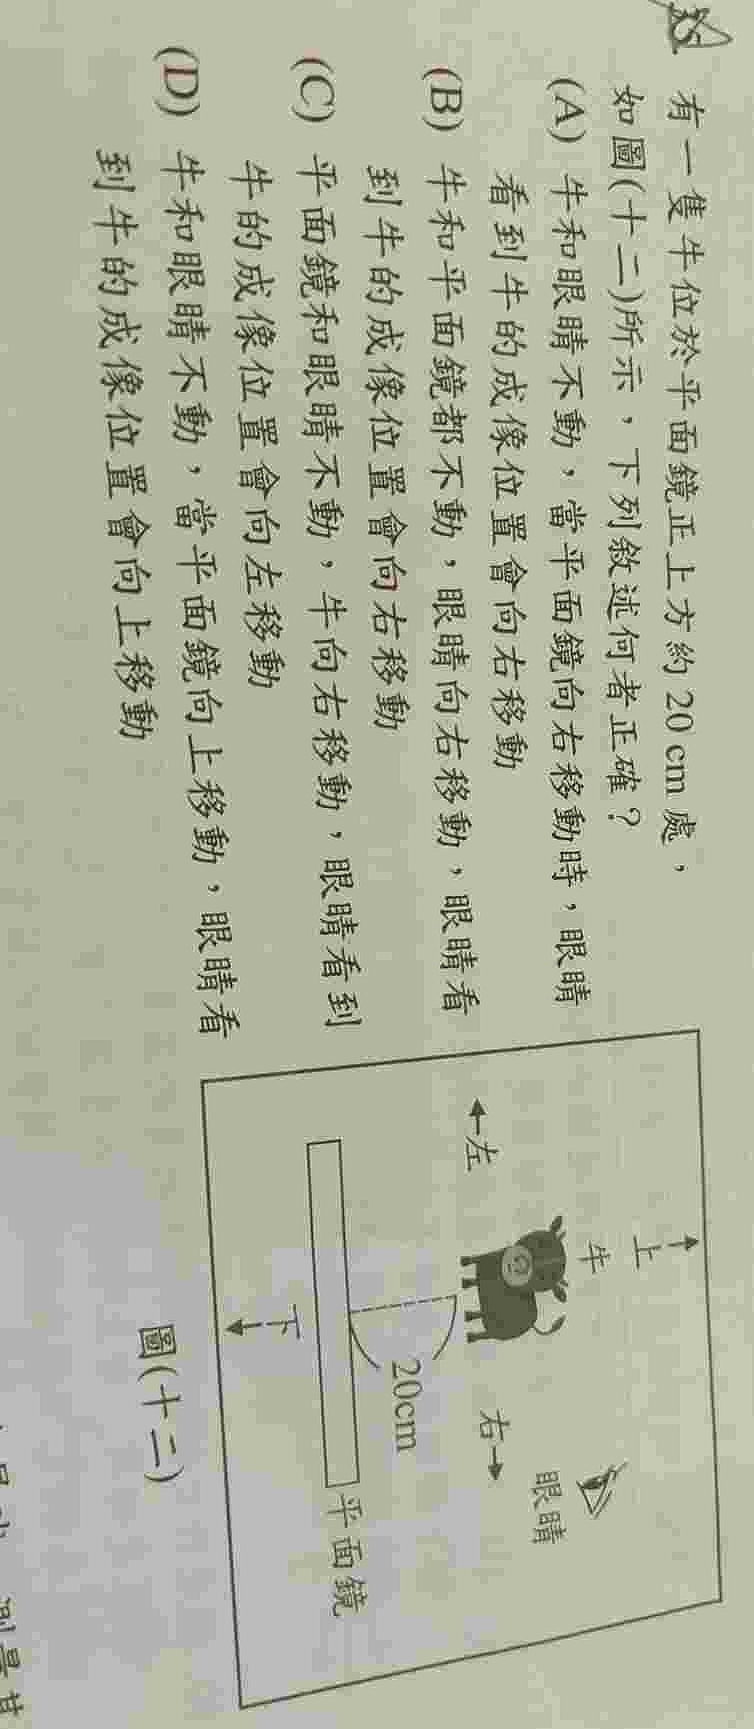 35
有一隻牛位於平面鏡正上方約20 cm處，
如圖(十二)所示，下列敘述何者正確？
(A) 牛和眼睛不動，當平面鏡向右移動時，眼睛
看到牛的成像位置會向右移動
(B) 牛和平面鏡都不動，眼睛向右移動，眼睛看
到牛的成像位置會向右移動
(C) 平面鏡和眼睛不動，牛向右移動，眼睛看到
牛的成像位置會向左移動
(D) 牛和眼睛不動，當平面鏡向上移動，眼睛看
到牛的成像位置會向上移動
上
牛
左
右
眼睛
20cm
下
平面鏡
圖(十二)